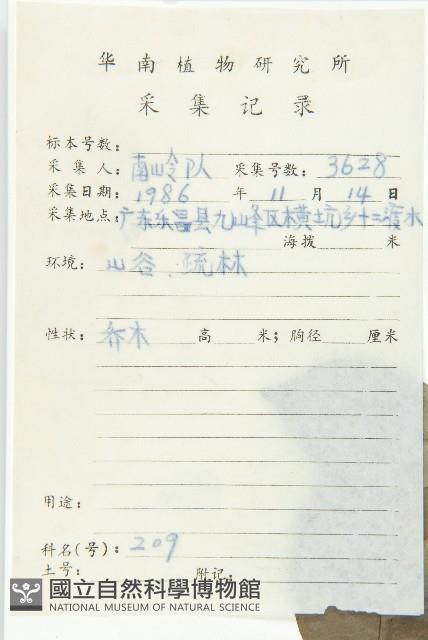 华南植物研究所
采集记录
标本号数：
采集人：南岭队 采集号数：3628
采集日期：1986年11月14日
采集地点：广东乐昌县九峰区横坑乡十二渡水
海拨 米
环境：山谷．疏林
性状：乔木 高 米；胸径 厘米
用途：
科名(号)：209
土号： 附记：
國立自然科學博物館
NATIONAL MUSEUM OF NATURAL SCIENCE